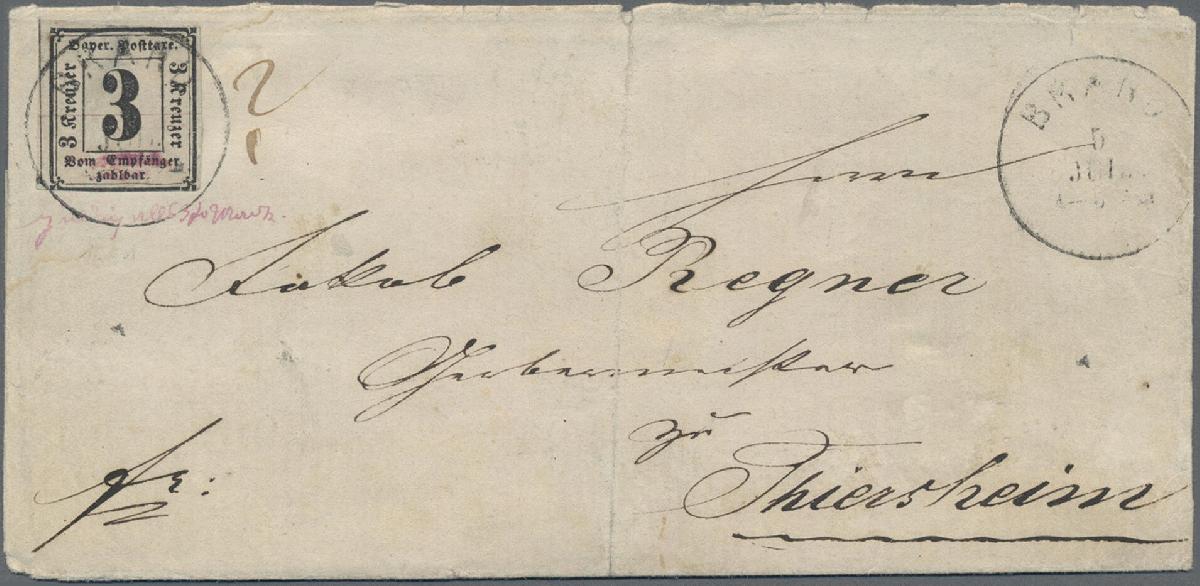 Bayer. Posttaxe.
3 Kreuzer
3
3 Kreuzer
Vom Empfänger
zahlbar.
BRAND
5
JUL
Herrn
Jakob Regner
Gerbermeister
zu
Thiersheim
fr: